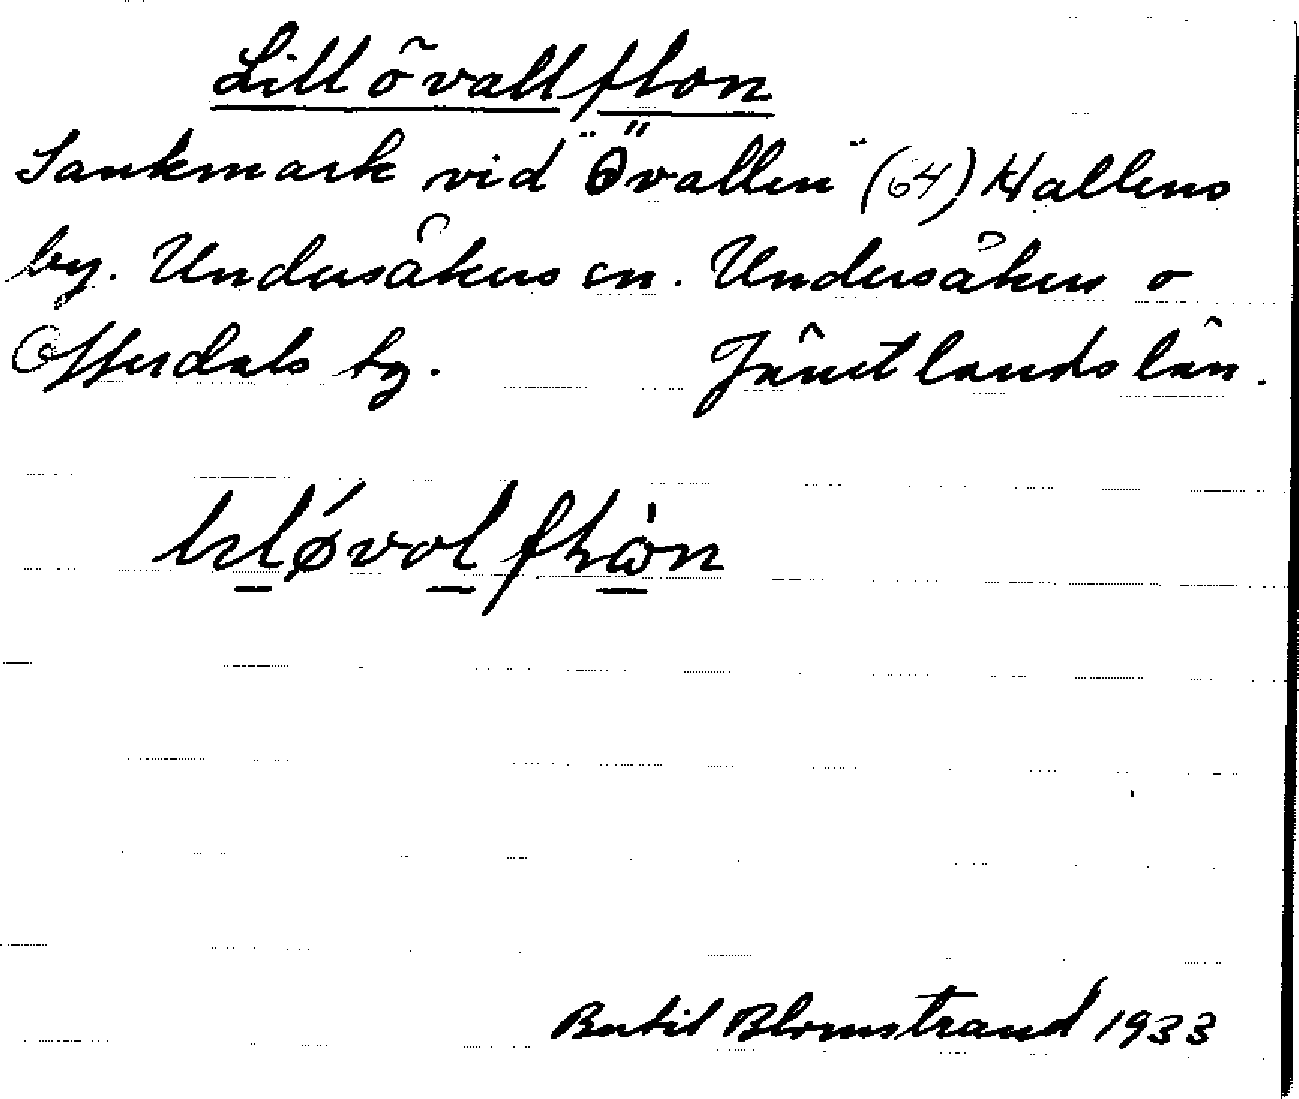 Lillövallflon
Sankmark vid Övallen (64) Hallens
by. Undersåkers sn. Undersåkers o
Offerdals tg. Jämtlands län.
lıløvolflωn
Bertil Blomstrand 1933